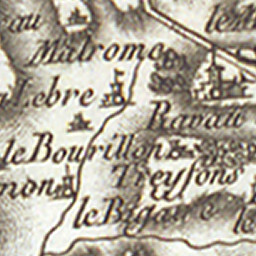 au
le
Malromé
Lebre
Ravau
le Bourillon
Treysons
non
le Bigau
le